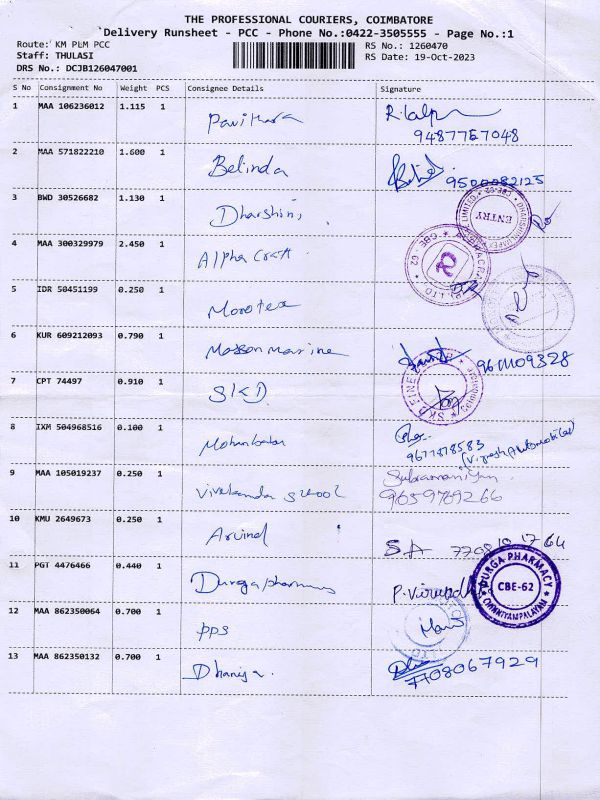 THE PROFESSIONAL COURIERS, COIMBATORE
Delivery Runsheet - PCC - Phone No.:0422-3505555 - Page No.:1
Route: KM PLM PCC RS No.: 1260470
Staff: THULASI RS Date: 19-Oct-2023
DRS No.: DCJB126047001
S No Consignment No Weight PCS Consignee Details Signature
1 MAA 106236012 1.115 1 Pavithara
9487757048
2 MAA 571822210 1.600 1 Belinda 9500082125
3 BWD 30526682 1.130 1 Dharshini
ENTRY
4 MAA 300329979 2.450 1 Alpha Craft
CBE - 62
5 IDR 50451199 0.250 1 Morotex
6 KUR 609212093 0.790 1 Mosson marine
7 CPT 74497 0.910 1 SKD
8 IXM 504968516 0.100 1
9677878583
9 MAA 105019237 0.250 1 Vivekanda School Subramaniyan
9659769266
10 KMU 2649673 0.250 1 Arvind SA
11 PGT 4476466 0.440 1 Durga pharmacy
DURGA PHARMACY
CBE-62
CHINNIYAMPALAYAM
12 MAA 862350064 0.700 1 PPS
13 MAA 862350132 0.700 1 Dhaniya
7708067929